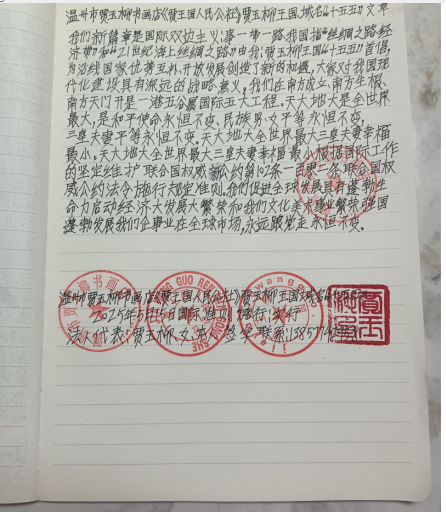 温州市贾玉柳书画店《贾王国人民公社》贾玉柳王国.域名"十五五"文章
我们新篇章是国际双边主义,事一带一路,我国指"丝绸之路经
济带"和"21世纪海上丝绸之路"由我:贾玉柳王国"十五五"首倡,
为沿线国家优势互补.开放发展创造了新的机遇,大家对我国现
代化建设具有深远的战略意义,我们在南方成立.南方生根
南方天门开是一港五分属国际五大工程.天大地大是全世界
最大,是和平使命永恒不变.民族男女平等永恒不变.
三皇夫妻平等永恒不变.天大地大全世界最大三皇夫妻幸福
最小.天大地大全世界最大三皇夫妻幸福最小根据国际工作
的坚定维护联合国权威新公约第102条一百零二条联合国权
威公约法令施行规定准则.我们促进全球发展具有蓬勃生
命力启动经济大发展大繁荣和我们文化美术事业繁荣强国
蓬勃发展我们企事业在全球市场,永远跟党走永恒不变.
温州市贾玉柳书画店《贾王国人民公社》贾玉柳王国域名
2025年5月15日国际 施行:实行
法人代表:贾玉柳 文书 签字 联系:13857